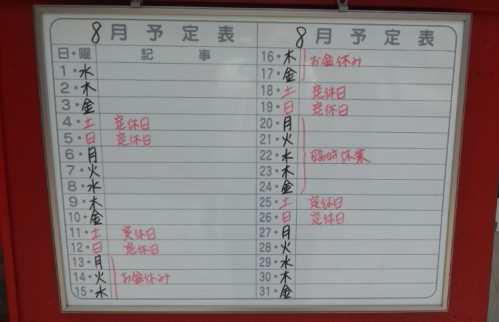 8月予定表
日・曜 記事
1・水
2・木
3・金
4・土 定休日
5・日 定休日
6・月
7・火
8・水
9・木
10・金
11・土 定休日
12・日 定休日
13・月
14・火 お盆休み
15・水
8月予定表
16・木 お盆休み
17・金
18・土 定休日
19・日 定休日
20・月
21・火
22・水 臨時休業
23・木
24・金
25・土 定休日
26・日 定休日
27・月
28・火
29・水
30・木
31・金